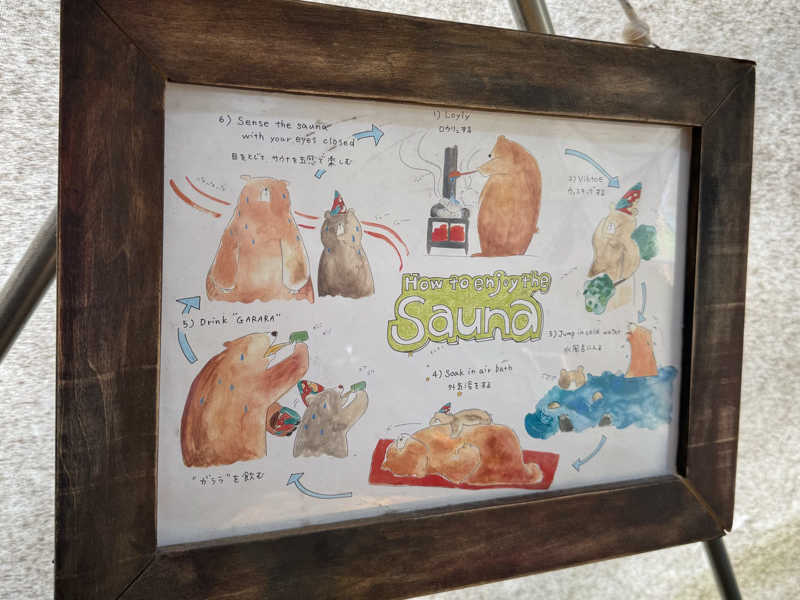 How to enjoy the
Sauna
1) Loyly
ロウリュする
2) Vihtoe
ウィスキングする
3) Jump in cold water
水風呂に入る
4) Soak in air bath
外気浴をする
5) Drink "GARARA"
"ガララ"を飲む
6) Sense the sauna
with your eyes closed
目をとじて、サウナを五感で楽しむ